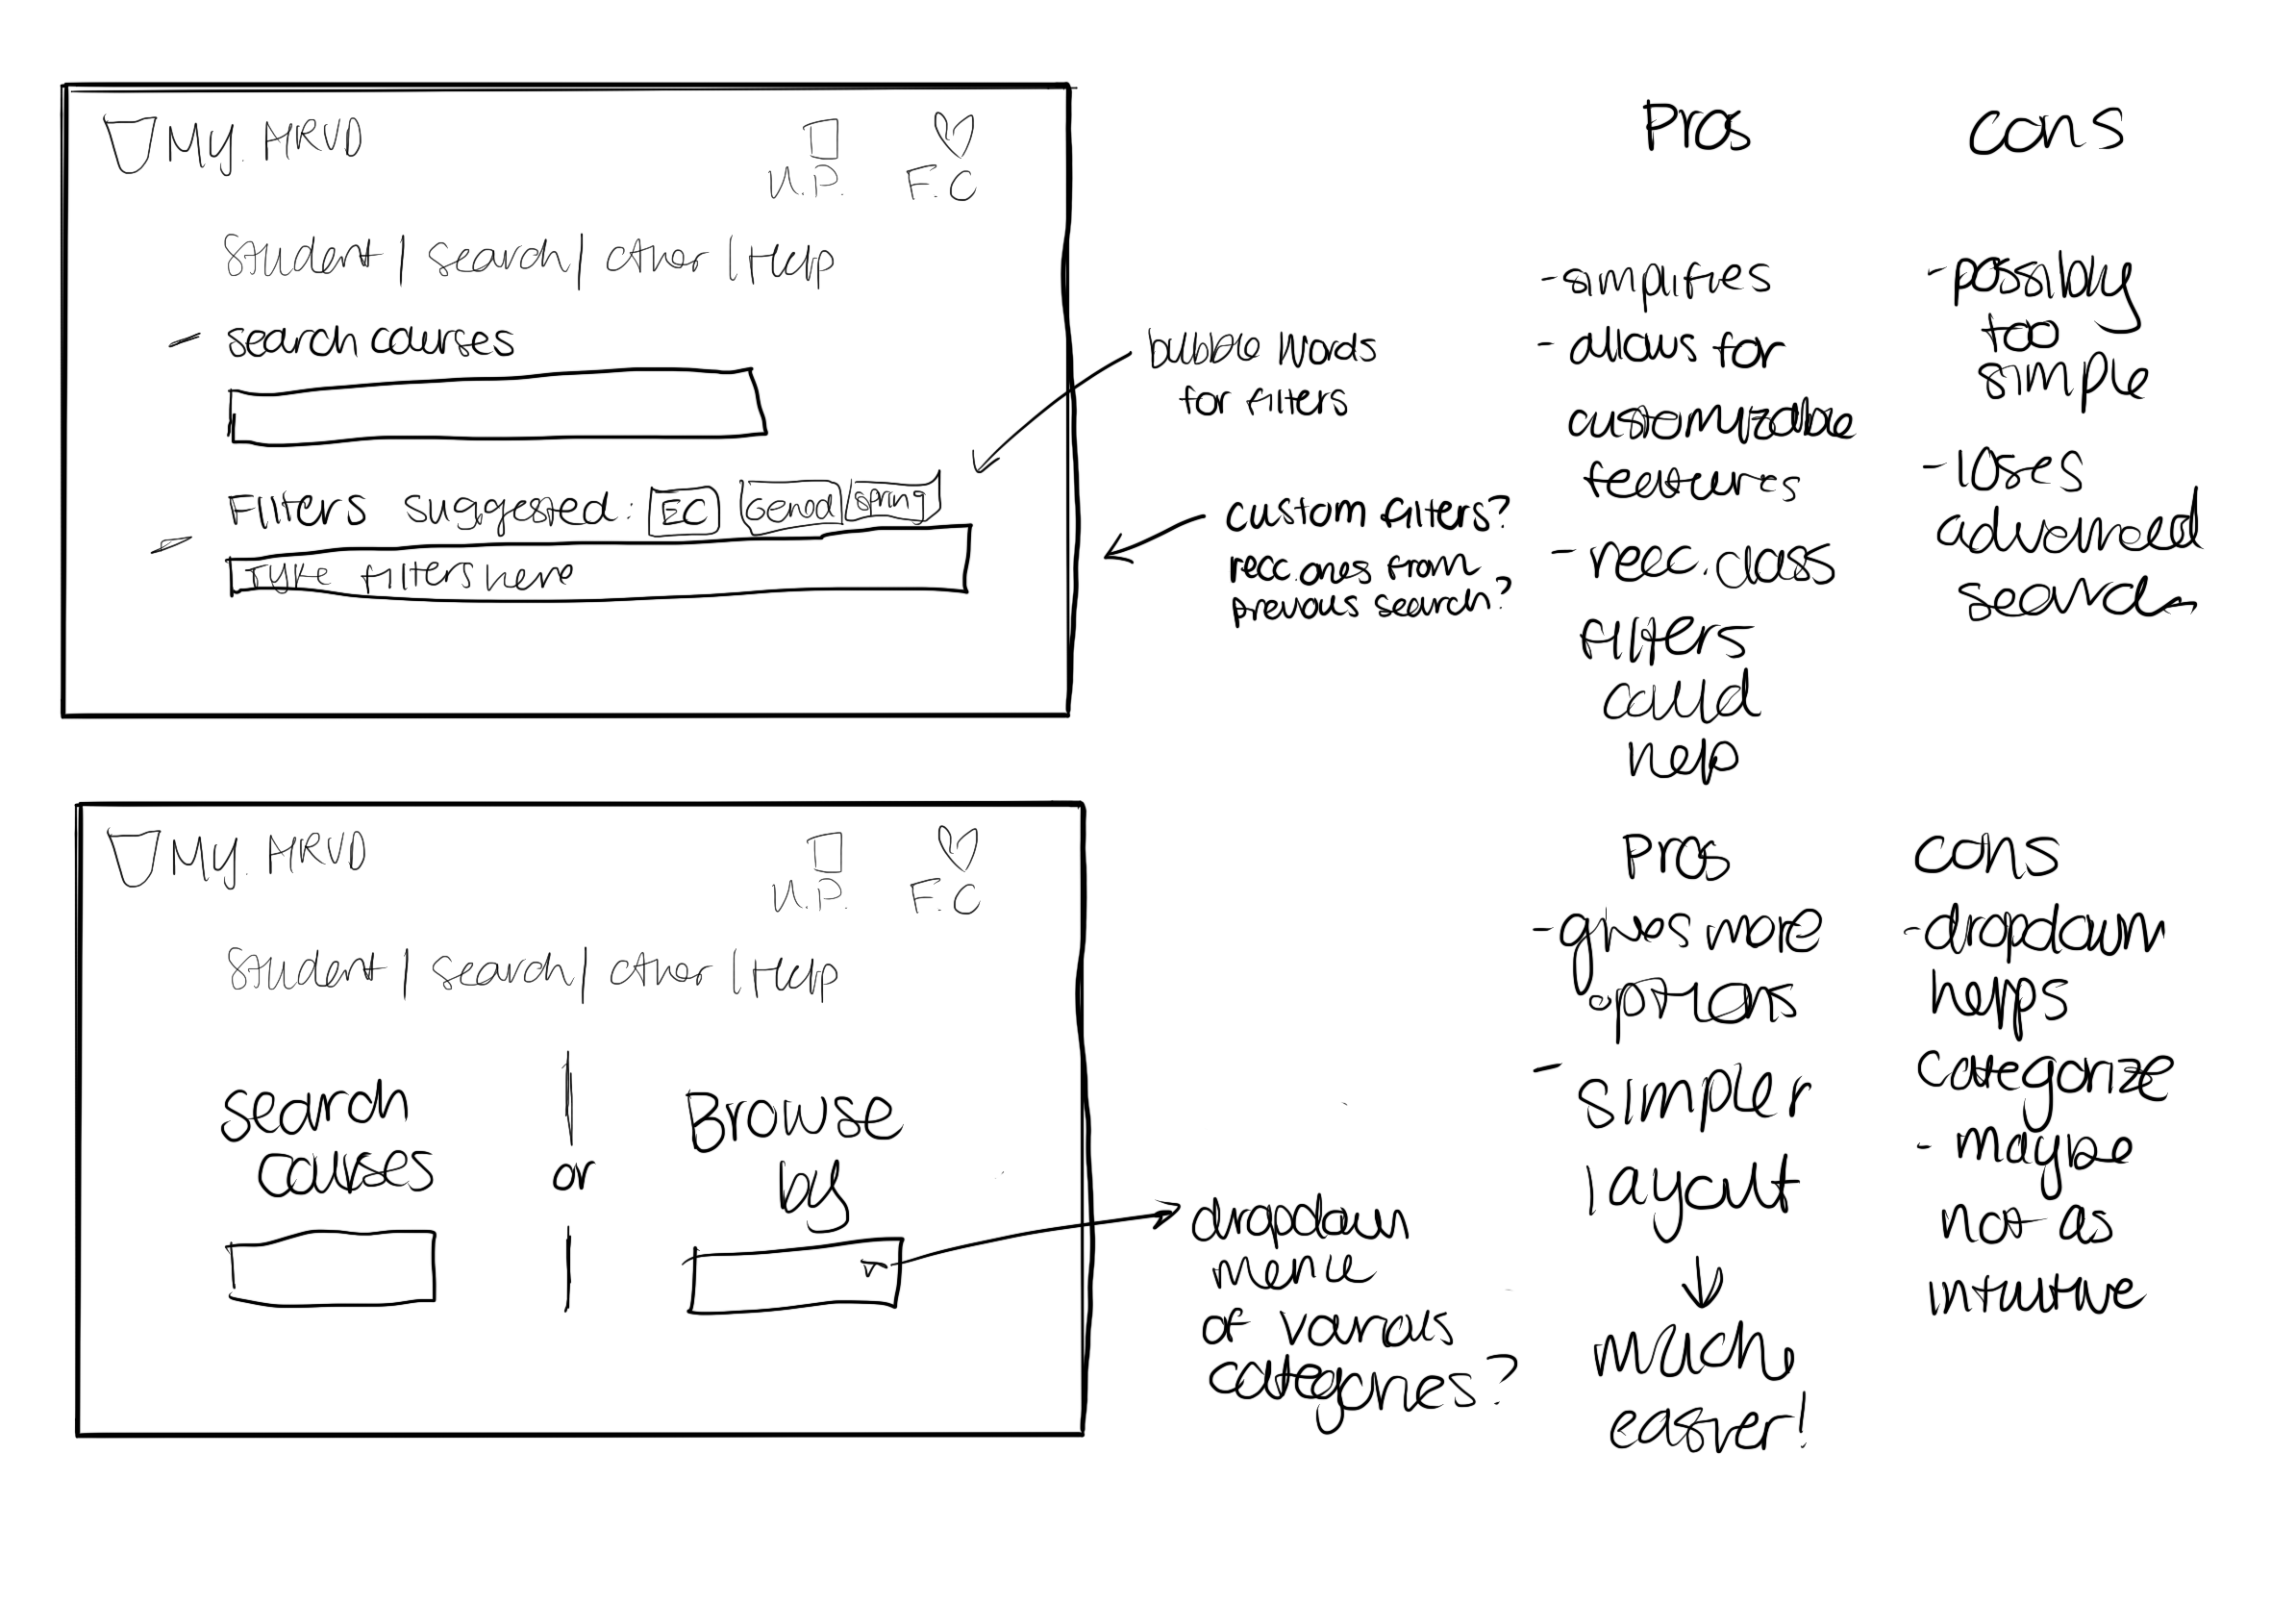 My. HRVD
U.P. F.C
Student | search | other | Help
- search courses
Filters suggested: EC Gened spring
- Type filters here
bubble words
for filters
custom filters?
recc. ones from
previous search?
Pros
- simplifies
- allows for
customizable
features
- recc. class
filters
could
help
cons
- possibly
too
simple
- loses
advanced
search
My. HRVD
U.P. F.C
Student | search | other | Help
search
courses
or
Browse
by
dropdown
menu
of various
categories?
Pros
- gives more
options
- simpler
layout
much
easier!
cons
- dropdown
helps
categorize
- maybe
not as
intuitive